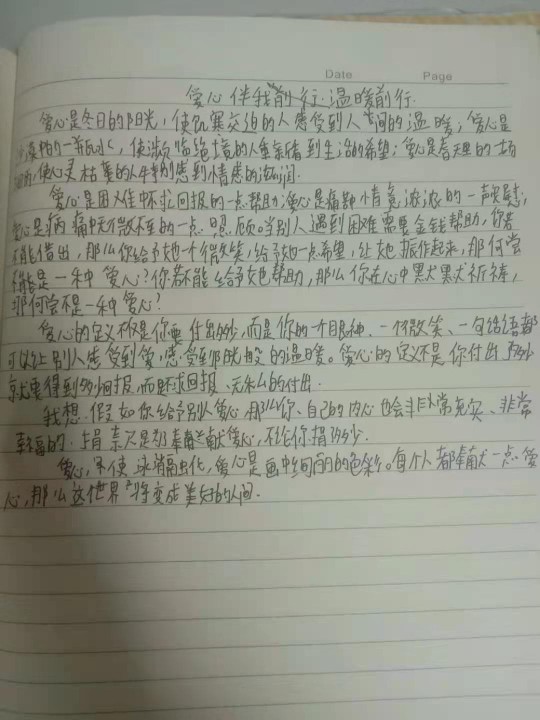 Date Page
爱心伴我前行·温暖前行
爱心是冬日的阳光，使饥寒交迫的人感受到人间的温暖；爱心是
沙漠中的一泉水，使濒临绝境的人重新看到生活的希望；爱心是春天里的一场
使心灵枯萎的人感到情感的滋润。
爱心是困难中不求回报的一点帮助；爱心是痛苦时情意浓浓的一声安慰，
爱心是病痛中无微不至的一点照顾。当别人遇到困难需要金钱帮助，你若
不能借出，那么你给予她一个微笑，给予她一点希望，让她振作起来，那何尝
不能是一种爱心？你若不能给予她帮助，那么你在心中默默祈祷，
那何尝不是一种爱心？
爱心的定义不仅是你要付出多少，而是你的一个眼神、一个微笑、一句话语都
可以让别人感受到爱，感受到阳光般的温暖。爱心的定义不是你付出多少
就要得到多少回报，而是不求回报、无私的付出。
我想，假如你给予别人爱心，那么你自己的内心也会非常充实、非常
幸福的。捐款只是为奉献爱心，不论你捐多少。
爱心，爱心是画中绚丽的色彩。每个人都奉献一点爱
心，那么这世界将变成美好的人间。